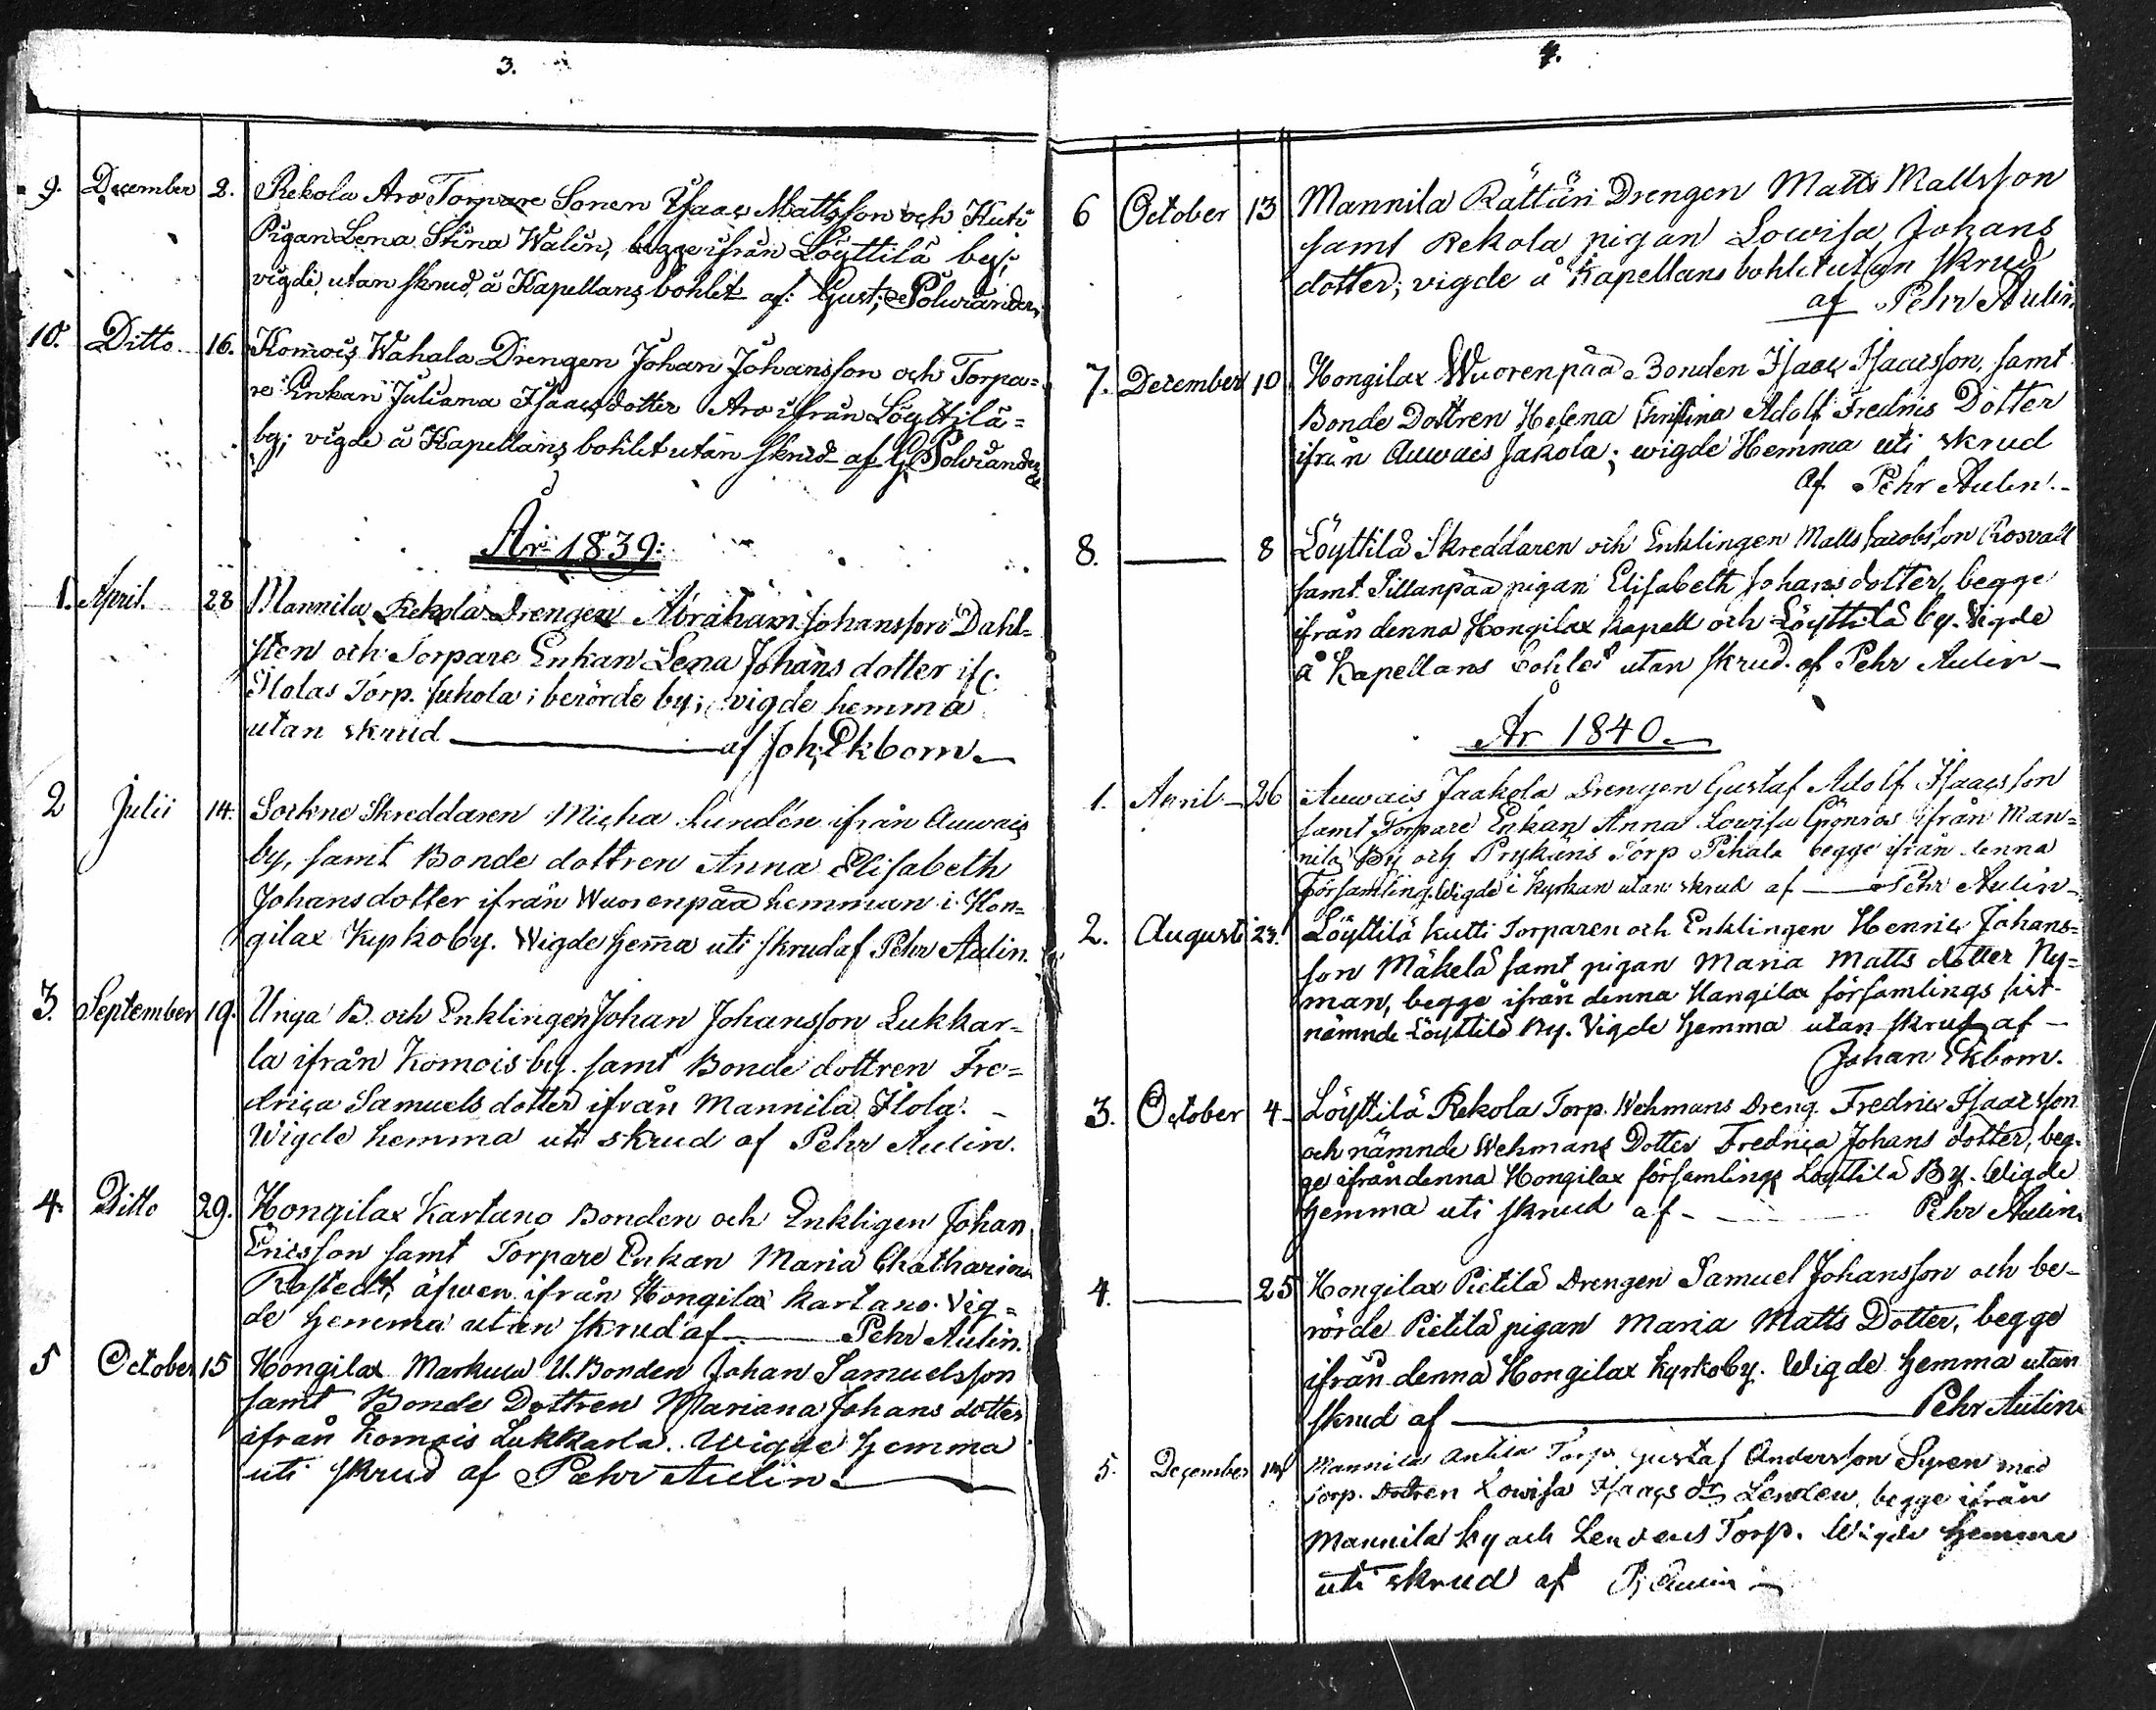 3.
9. December 2. Rekola Aro Torpare Sonen Isaac Mattsson och Kuti
Pigan Lena Stina Walin, begge ifrån Löyttilä by;
vigde utan skrud, å Kapellans bohlet af: Gust; Polviander
10. Ditto 16. Komois Wahala Drengen Johan Johansson och Torpa=
re Enkan Juliana Isaacsdotter Aro ifrån Löyttilä=
by; vigde å Kapellans bohlet utan skrud af G. Polviander
År 1839:
1. April. 28 Mannila Rekola Drengen Abraham Johansson Dahl=
sten och Torpare Enkan Lena Johans dotter if:
Ilolas Torp. Juhola i berörde by; vigde hemma
utan skrud af Joh; Ekbom.
2 Julii 14. Sockne Skreddaren Micha Lundén ifrån Auvais
by, samt Bonde dottren Anna Elisabeth
Johansdotter ifrån Wuorenpää hemman i Hon=
gilax Kyrkoby. Wigde hema uti skrud af Pehr Aulin.
3. September 19. Unga B. och Enklingen Johan Johansson Lukkar=
la ifrån Komois by. samt Bonde dottren Fre=
drica Samuels dotter ifrån Mannila Ilola.
Wigde hemma uti skrud af Pehr Aulin.
4. Ditto 29. Hongilax Kartano Bonden och Enkligen Johan
Ericsson samt Torpare Enkan Maria Chatharina
Rostedt, äfven ifrån Hongilax Kartano. Vig=
de hemma utan skrud af Pehr Aulin.
5 October 15 Hongilax Markula U. Bonden Johan Samuelsson
samt Bonde Dottren Mariana Johans dotter
ifrån Komois Lukkarla. Wigde hemma
uti skrud af Pehr Aulin
4.
6 October 13 Mannila Rättäri Drengen Matts Mattsson
samt Rekola pigan Lowisa Johans
dotter; vigde å Kapellans bohlet utan skrud
af Pehr Aulin
7. December 10 Hongilax Wuorenpää Bonden Isaac Isaacsson, samt
Bonde Dottren Helena Christina Adolf Fredrics Dotter
ifrån Auwais Jakola; wigde Hemma uti skrud
Af Pehr Aulin.
8. 8 Löyttilä Skreddaren och Enklingen Matts Jacobsson Rosvall
samt Sillanpää pigan Elisabeth Johans dotter, begge
ifrån denna Hongilax kapell och Löyttilä by. Vigde
å Kapellans bohlet utan skrud. af Pehr Aulin
År 1840.
1. April 26 Auwais Jaakola Drengen Gustaf Adolf Isaacsson
samt Torpare Enkan Anna Lowisa Grönroos ifrån Man=
nila By och Prykäris Torp Pihala begge ifrån denna
Församling. Wigde i kyrkan utan skrud af Pehr Aulin
2. Augusti 23. Löyttilä Kutti Torparen och Enklingen Henric Johans=
son Mäkelä samt pigan Maria Matts dotter Ny=
man, begge ifrån denna Hongilax församlings sist-
nämnde Löyttilä By. Vigde hemma utan skrud af
Johan Ekbom.
3. October 4 Löyttilä Rekola Torp. Wehmans Dreng. Fredric Isaacsson
och nämnde Wehmans Dotter Fredrica Johans dotter, beg=
ge ifrån denna Hongilax församlings Löyttilä By. Wigde
hemma uti skrud af Pehr Aulin.
4. 25 Hongilax Pietilä Drengen Samuel Johansson och be=
rörde Pietilä pigan Maria Matts Dotter, begge
ifrån denna Hongilax Kyrkoby. Wigde hemma utan
skrud af Pehr Aulin
5. December Mannila Antila Torp. Gustaf Andersson Syren med
Torp. Dottren Lowisa Isaacs dr Lenden, begge ifrån
Mannila by och Lendens Torp. Wigde hemma
uti skrud af P; Aulin